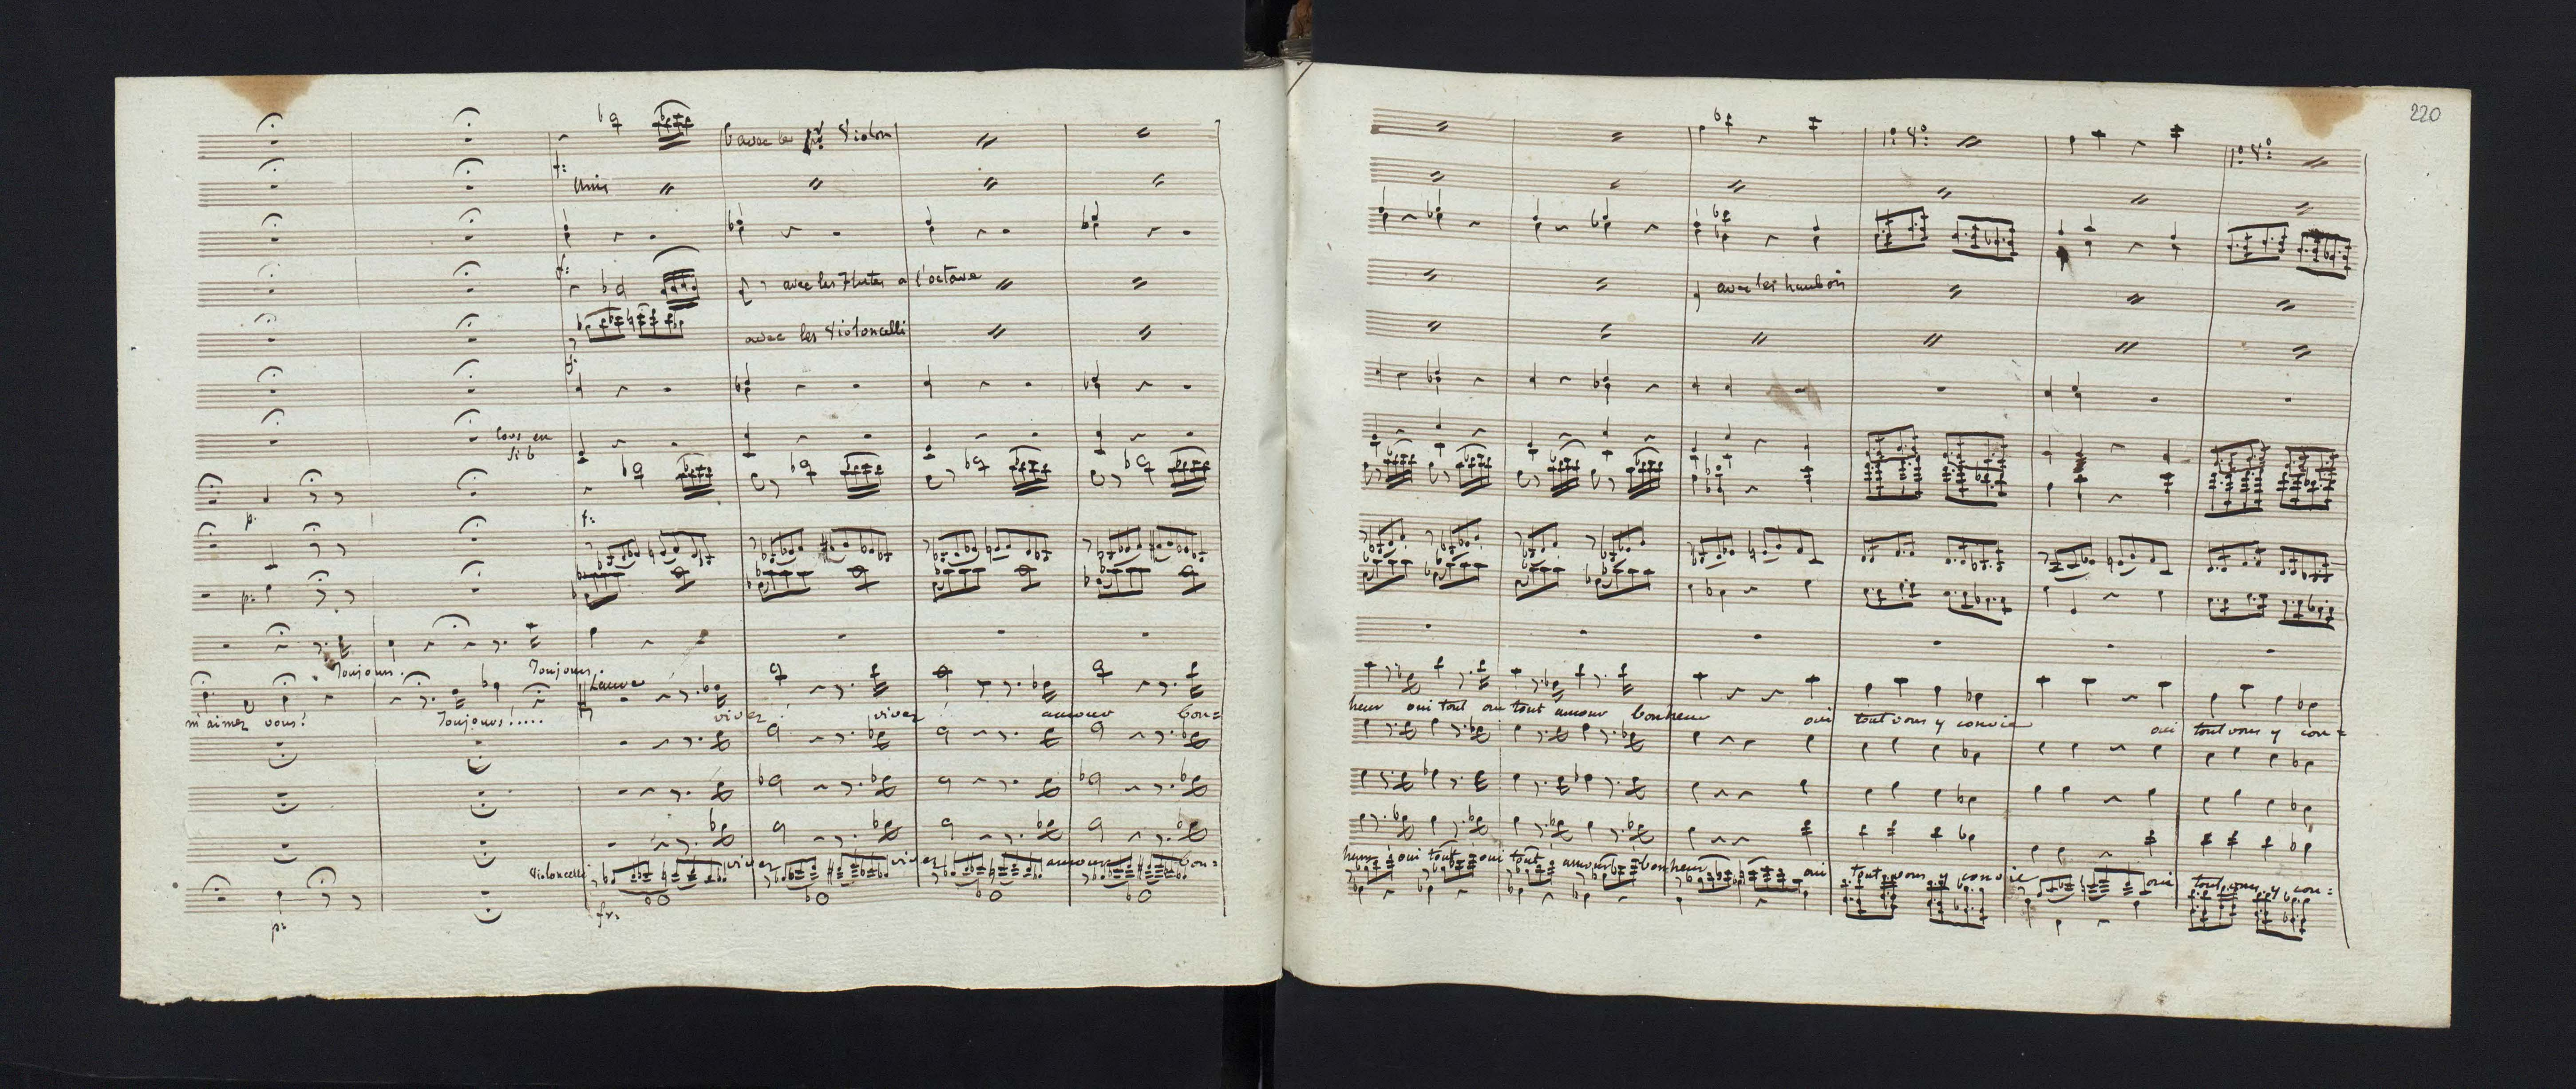 6 avec les 1rs Violon
f:
unis
f:
avec les Flutes a l'octave
avec les Violoncelli
f:
Cors en
si b
p.
f:
p:
Toujours. Toujours.
Laure
m'aimez vous? Toujours!..... vivez! vivez! amour bon=
Violoncelli vivez vivez amour bon=
p:
fr:
220
1° 4°: 1° 4°:
avec les hautbois
heur oui tout oui tout amour bonheur oui tout vous y convie oui tout vous y con=
heur oui tout oui tout amour bonheur oui tout vous y convie oui tout vous y con=